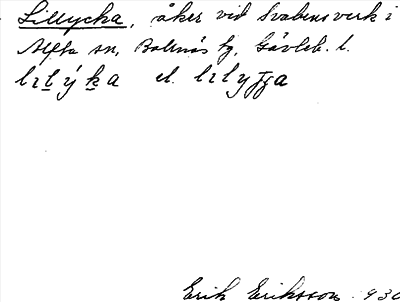 Lillycka, åker vid Svabensverk i
Alfta sn, Bollnäs tg, Gävleb. l.
el.
Erik Eriksson 930